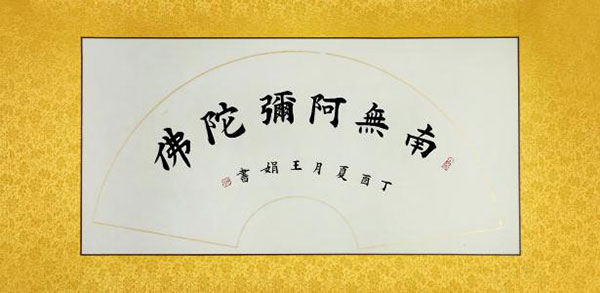 南無阿彌陀佛
丁酉夏月王娟書